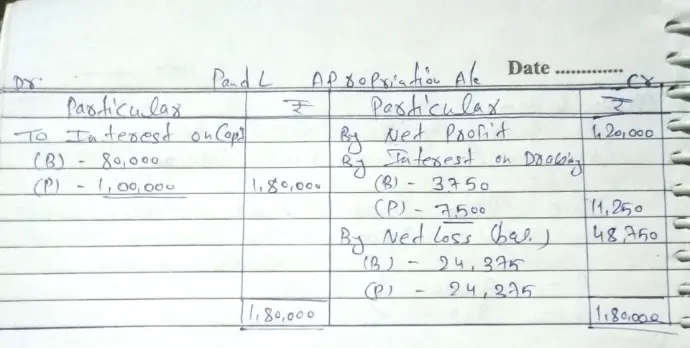 Date ..............
Dr. P and L Appropriation A/c Cr
Particular ₹ Particular ₹
To Interest on Cap. By Net Profit 1,20,000
(B) - 80,000 By Interest on Drawing
(P) - 1,00,000 1,80,000 (B) - 3750
(P) - 7,500 11,250
By Net Loss (bal.) 48,750
(B) - 24,375
(P) - 24,375
1,80,000 1,80,000